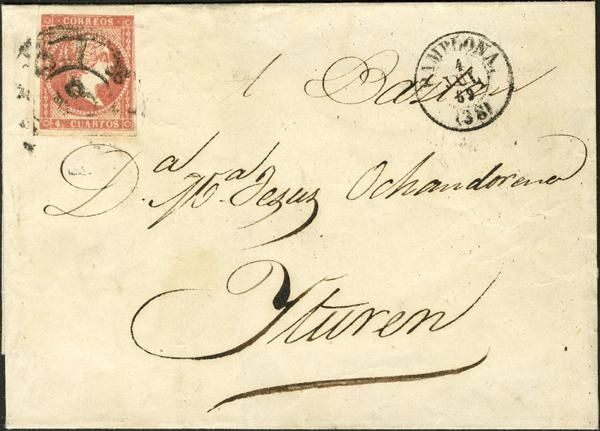 CORREOS
4 CUARTOS
PAMPLONA.
4
JUL
59
(38)
Baztan
D.ª M.ª Jezus Ochandorena
Yturen